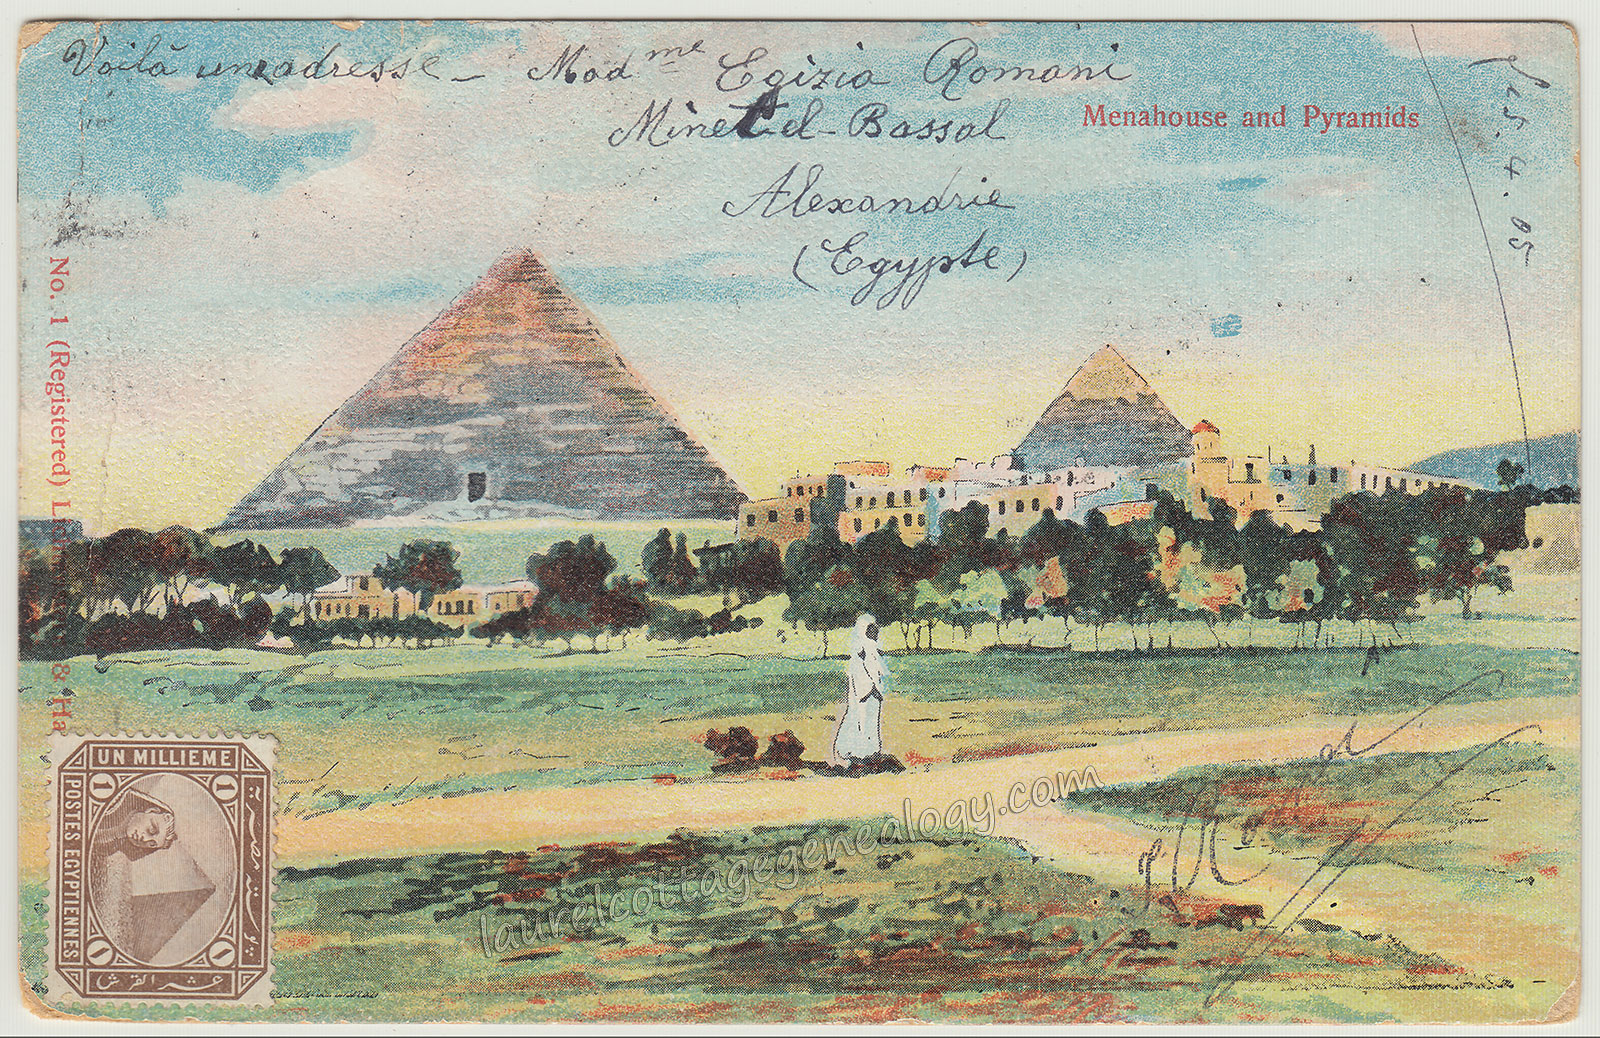 Voilà une adresse - Madme Egizia Romani
Minet el-Bassal
Alexandrie
(Egypte)
Menahouse and Pyramids
15.4.05
No. 1 (Registered) & Ha
UN MILLIEME
1 1
POSTES EGYPTIENNES
بوستة مصرية
1 1
عشر القرش
laurelcottagegenealogy.com